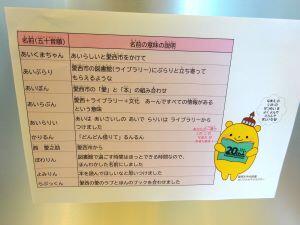 名前(五十音順) 名前の意味の説明
あいくまちゃん あいらしいと愛西をかけて
あいぶらり 愛西の図書館(ライブラリー)にぶらりと立ち寄って
もらえるような
あいぽん 愛西市の「愛」と「本」の組み合わせ
あいらぶん 愛西+ライブラリー+文化 あ~んですべての情報がある
という意味
あいらりい あいは あいさいしの あいで らりいは ライブラリーから
つけました
かりるん 「どんどん借りて」るんるん
西 愛之助 愛西市から
ほわりん 図書館で過ごす時間はほっとできる時間なので、
ほんわかした名前にしました
よみりん 本を読んでほしいなと思いつけました
らぶっくん 愛西の愛のラブとほんのブックを合わせました
20